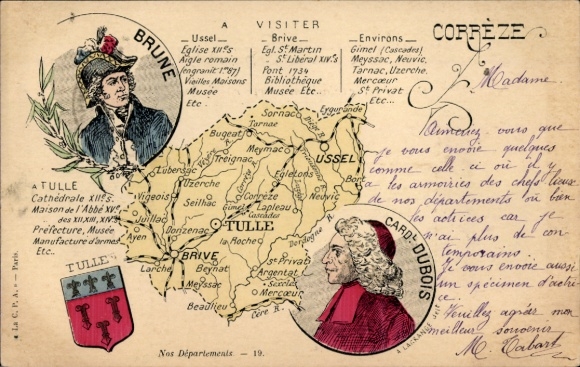 A VISITER
CORRÈZE
Ussel
Eglise XIIe S
Aigle romain
(en granit 1m87)
Vieilles Maisons
Musée
Etc...
Brive
Egl. St Martin
St Libéral XIVe s.
Pont 1734
Bibliothèque
Musée Etc...
Environs
Gimel (Cascades)
Meyssac, Neuvic,
Tarnac, Uzerche,
Mercœur
St Privat
Etc...
BRUNE
A TULLE
Cathédrale XIIe S.
Maison de l'Abbé XVe
des XII, XIII, XIV
Préfecture, Musée
Manufacture d'armes
Etc..
TULLE
Eygurande
Sornac
Tarnac
Bugeat
USSEL
Lubersac
Treignac
Meymac
Vézère R.
Corrèze R.
Diège R.
Uzerche
Egletons
Bort
Vigeois
Seilhac
Corrèze
Neuvic
Gimel
Lapleau
Cascades
Juillac
TULLE
Donzenac
Ayen
la Roche
Dordogne R.
BRIVE
St Privat
Larche
Beynat
Argentat
Meyssac
Mercœur
Beaulieu
Cère R.
CARDL DUBOIS
A LACKANGE DEL
« La C. P. A. » — Paris.
Nos Départements. — 19.
Madame
Aimeriez-vous que
je vous envoie quelques
comme celle-ci où il y
a les armoiries des chefs lieux
de nos départements où bien
les actrices car je
n'ai plus de con-
temporains.
Je vous envoie aussi
un spécimen d'actri-
ce.
Veuillez agréer mon
meilleur souvenir
M. Tabart